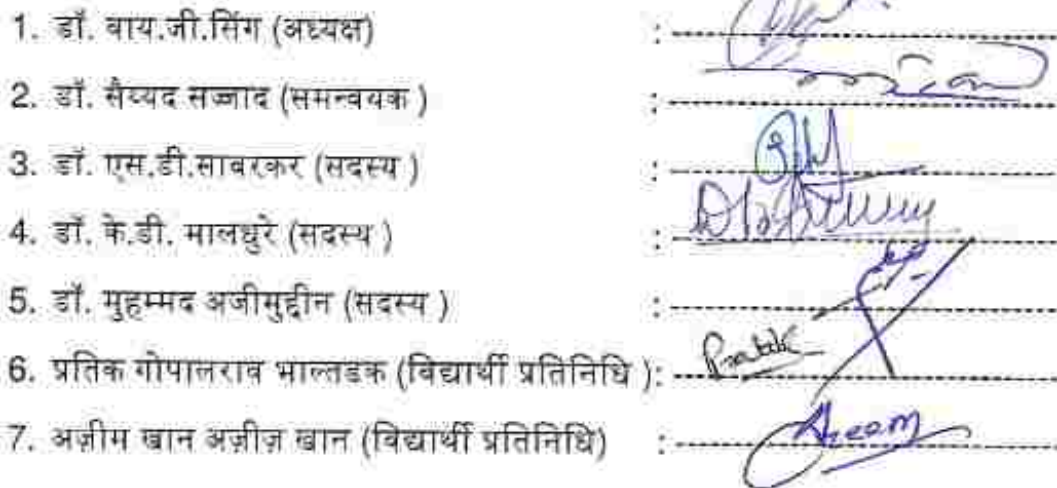 1. डॉ. वाय.जी.सिंग (अध्यक्ष) :
2. डॉ. सैय्यद सज्जाद (समन्वयक ) :
3. डॉ. एस.डी.सावरकर (सदस्य ) :
4. डॉ. के.डी. मालधुरे (सदस्य ) :
5. डॉ. मुहम्मद अजीमुद्दीन (सदस्य ) :
6. प्रतिक गोपालराव भाल्तडक (विद्यार्थी प्रतिनिधि ): Pratik
7. अज़ीम खान अज़ीज़ खान (विद्यार्थी प्रतिनिधि) : Azeem